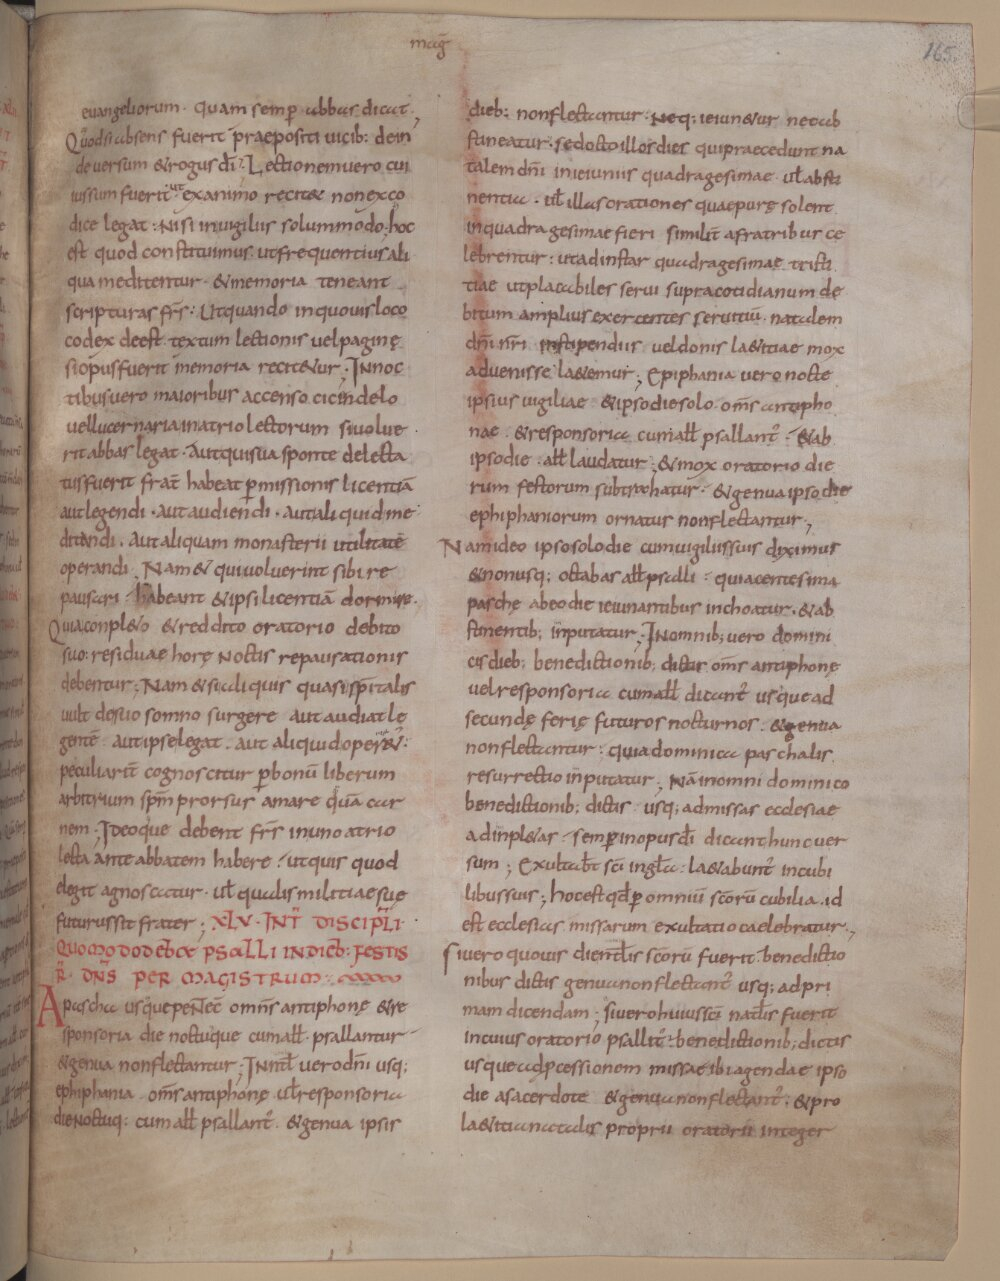 mag̅
165
euangeliorum · quam semp̲ abbas dicat ·
Quodsi absens fuerit praepositi uicib; dein
de uersum & rogus dī · Lectionem uero cui
iussum fuerit ut ex animo recit& non ex co
dice legat · Nisi in uigiliis solummodo · hoc
est quod constituimus · ut frequentius ali
qua meditentur · & memoria teneant
scripturas fr̄s · Ut quando in quouis loco
codex deest · textum lectionis uel paginę
si opus fuerit memoria recit&ur ; In noc
tibus uero maioribus accenso cicindelo
uel lucernaria in atrio lectorum si uolue
rit abbas legat · Aut qui sua sponte delecta
tus fuerit frat̄ habeat p̲missionis licentiā
aut legendi · aut audiendi · aut aliquid me
ditandi · Aut aliquam monasterii utilitatē
operandi · Nam & qui uoluerint sibi re
pausari · habeant & ipsi licentiā dormire ·
Quia conpl&o & reddito oratorio debito
suo : residuae horę noctis repausationis
debentur ; Nam & si aliquis quasi sp̄italis
uult de suo somno surgere aut audiat le
gentē · aut ipse legat · aut aliquid oper&ur :
peculiarit̄ cognoscitur p̲ bonū liberum
arbitrium sp̄m prorsus amare quā car
nem ; Ideoque debent fr̄s in uno atrio
lecta ante abbatem habere : ut quis quod
elegit agnoscatur · ul̄ qualis militiae suę
futurus sit frater ; XLV · INT̄ DISCIPL̄I
QUOMODO DEBEAT PSALLI IN DIEB; FESTIS
R̄ · DN̄S PER MAGISTRUM :
A pascha usque penteć omn̄s antiphonę & re
sponsoria die noctuque cum all̄ psallantur
& genua non flectantur ; In natl̄ uero dn̄i usq;
ephiphania · om̄s antiphonę ul̄ responsoria
die noctuq; cum all̄ psallant̄ · & genua ipsis
dieb; non flectantur · Neq; ieiun&ur nec ab
stineatur · sed octo illos dies qui praecedunt na
talem dn̄i in ieiuniis quadragesimae · ul̄ absti
nentia · ul̄ illas orationes quae purę solent
in quadragesimae fieri similit̄ a fratribus ce
lebrentur : ut ad instar quadragesimae tristi
tiae ut placabiles serui supra cotidianum de
bitum amplius exercentes seruitiū · natalem
dn̄i nr̄i in stipendiis uel donis la&itiae mox
aduenisse la&emur ; Epiphania uero nocte
ipsius uigiliae & ipso die solo · om̄s antipho
nae & responsoria cum all̄ psallant̄ · & ab
ipso die · all̄ laudatur · & mox oratorio die
rum festorum subtrahatur · & genua ipso die
ephiphaniorum ornatur non flectantur ,
Nam ideo ipso solo die cum uigiliis suis diximus
& non usq; octabas all̄ psalli : quia centesima
paschę ab eo die ieiunantibus inchoatur · & ab
stinentib; inputatur ; In omnib; uero domini
cis dieb; benedictionib; dictis om̄s antiphonę
uel responsoria cum all̄ dicant̄ usque ad
secundę ferię futuros nocturnos · & genua
non flectantur : quia dominica paschalis
resurrectio inputatur ; Nā in omni dominico
benedictionib; dictis · usq; ad missas ecclesiae
adinpl&as · semp̲ in opus dī dicant hunc uer
sum ; Exultab̄t sc̄i in gl̄a · la&abunt̄ in cubi
libus suis ; hoc est qd̄ p̲ omniū sc̄orū cubilia · id
est ecclesias missarum exultatio caelebratur ;
Si uero quouis die nt̄lis sc̄orū fuerit · benedictio
nibus dictis genua non flectant̄ usq; ad pri
mam dicendam ; si uero huius sc̄i natl̄is fuerit
in cuius oratorio psallit̄ · benedictionib; dictis
usque ad p̲cessionem missae ibi agendae ipso
die a sacerdote & genua non flectant̄ ; & pro
la&itia natalis proprii oratorii integer